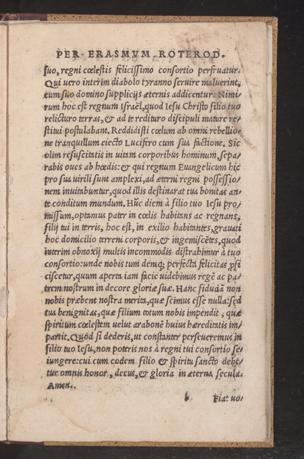 PER ERASMVM ROTEROD.
suo, regni cœlestis felicissimo consortio perfruatur.
Qui vero interim diabolo tyranno servire maluerint,
cum suo domino supplicijs æternis addicentur. Nimi
rum hoc est regnum Israël, quod Iesu Christo filio tuo
relicturo terras, & ad te redituro discipuli mature re/
stitui postulabant. Reddidisti cœlum ab omni rebellio/
ne tranquillum eiecto Lucifero cum sua factione. Sic
olim resuscitatis in vitam corporibus hominum, sepa/
rabis oves ab hœdis: & qui regnum Evangelicum hic
pro sua virili sunt amplexi, ad æterni regni possessio/
nem invitabuntur, quod illis destinarat tua bonitas an/
te conditum mundum. Hũc diem à filio tuo Iesu pro/
missum, optamus pater in cœlis habitans ac regnans,
filij tui in terris, hoc est, in exilio habitantes, gravati
hoc domicilio terreni corporis, & ingemiscẽtes, quod
interim obnoxij multis incommodis distrahimur à tuo
consortio: unde nobis tum demũ perfecta felicitas psi
ciscetur, quum aperta iam facie videbimus regẽ ac pa/
trem nostrum in decore gloriæ suæ. Hanc fiduciã non
nobis præbent nostra merita, quæ scimus esse nulla: sed
tua benignitas, quæ filium totum nobis impendit, quæ
spiritum cœlestem velut arabonẽ huius hæreditatis im/
partit. Quòd si dederis, ut constanter perseveremus in
filio tuo Iesu, non poteris nos à regni tui consortio se/
iungere: cui cum eodem filio & spiritu sancto debe/
tur omnis honor, decus, & gloria in æterna secula.
Amen.
b Fiat vo/